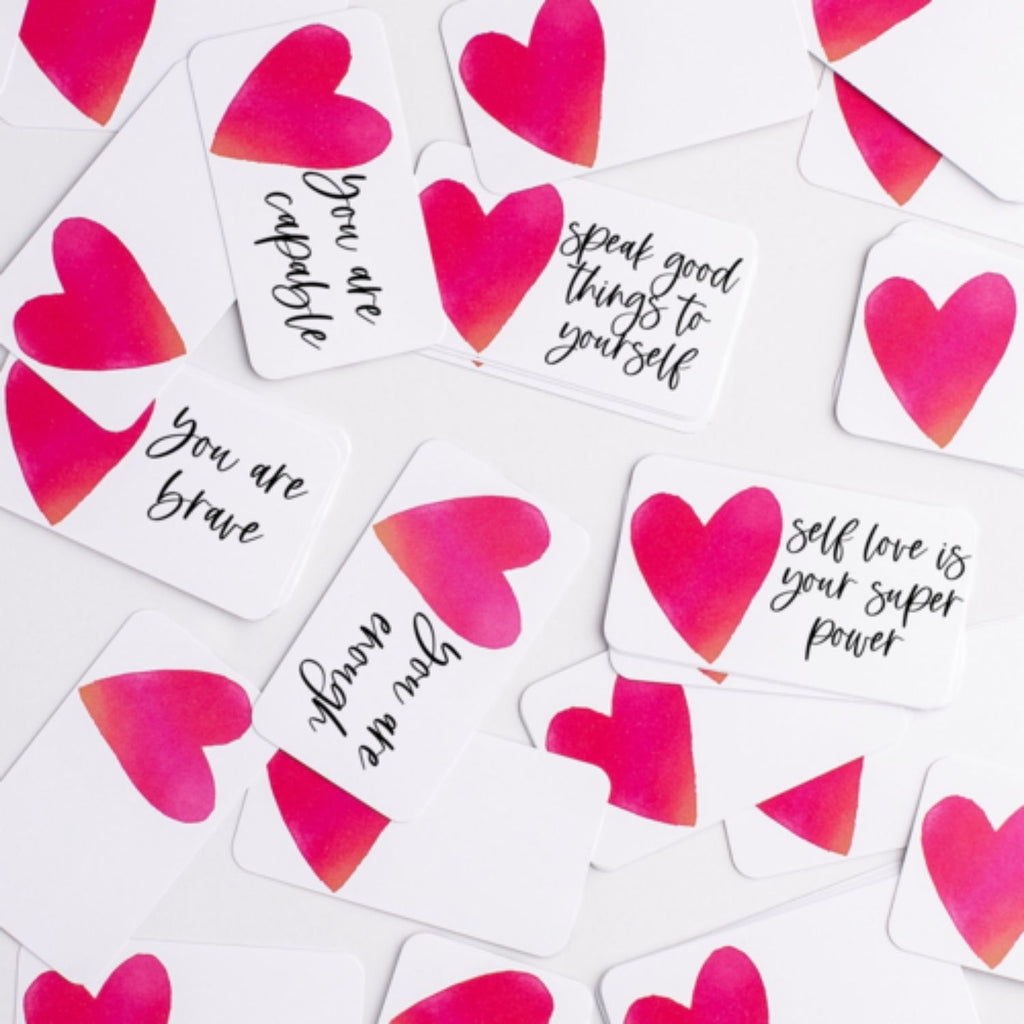 you are
capable
speak good
things to
yourself
you are
brave
you are
enough
self love is
your super
power